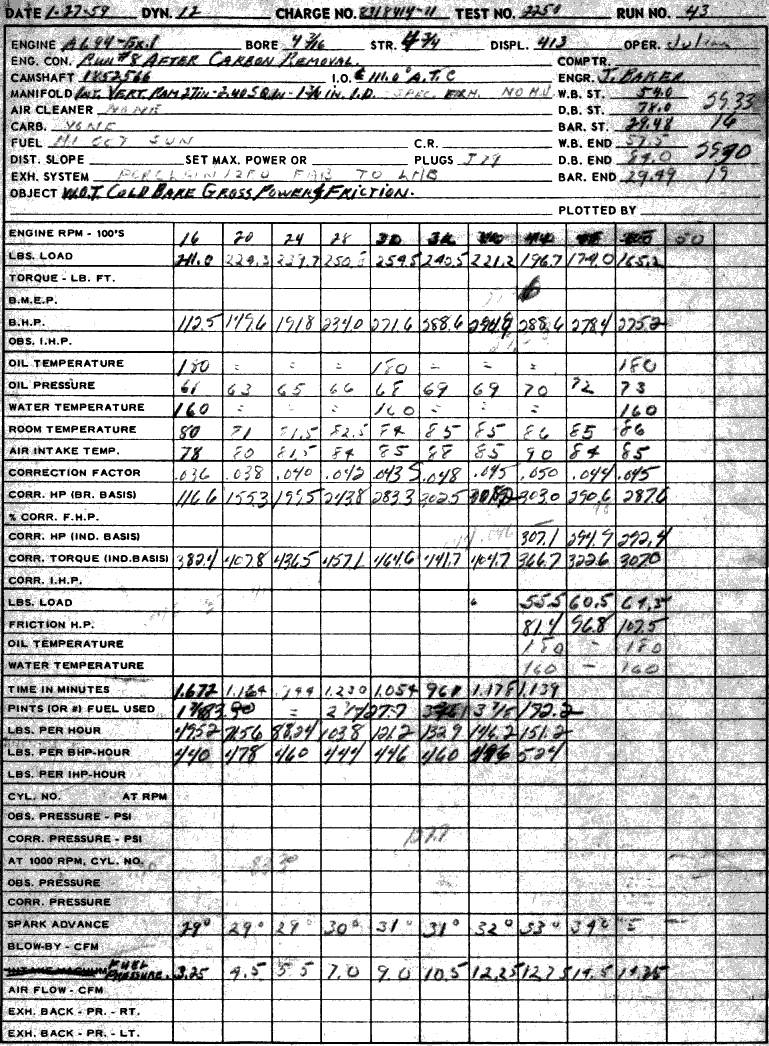 DATE 1-27-59 DYN. 12 CHARGE NO. 8318414-11 TEST NO. 2250 RUN NO. 43
ENGINE A694-Ex.1 BORE 4 3/16 STR. 3 3/4 DISPL. 413 OPER.
ENG. CON. RUN #8 AFTER CARBON REMOVAL. COMPTR.
CAMSHAFT 1852566 I.O. ¢ 111.0° A.T.C ENGR. J. BAKER
MANIFOLD INT. VERT. RAM 27IN - 2.40 SQ. IN - 1 3/4 IN. I.D. SPEC. EXH. NO H.J W.B. ST. 59.0
AIR CLEANER NONE D.B. ST. 78.0 29.33
CARB. BAR. ST. 29.48 16
FUEL HI OCT SUN C.R. W.B. END 57.5
DIST. SLOPE SET MAX. POWER OR PLUGS J29 D.B. END 84.0 29.90
EXH. SYSTEM TO LAB BAR. END 29.49 19
OBJECT W.O.T. COLD BARE GROSS POWER & FRICTION.
PLOTTED BY
ENGINE RPM - 100'S 16 20 24 28 30 50
LBS. LOAD 211.0 224.3 239.7 250.5 254.5 240.5 221.2 196.7 174.0 165.2
TORQUE - LB. FT.
B.M.E.P.
B.H.P. 112.5 149.6 191.8 234.0 271.6 288.6 294.9 288.6 278.4 275.2
OBS. I.H.P.
OIL TEMPERATURE 180 = = = 180 = = = 180
OIL PRESSURE 61 63 65 66 68 69 69 70 72 73
WATER TEMPERATURE 160 = = = 160 = = = 160
ROOM TEMPERATURE 80 81 81.5 82.5 84 85 85 86 85 86
AIR INTAKE TEMP. 78 80 81.5 84 85 88 85 90 84 85
CORRECTION FACTOR .036 .038 .040 .042 .043 .048 .045 .050 .044 .045
CORR. HP (BR. BASIS) 116.6 155.3 199.5 243.8 283.3 302.5 308.2 303.0 290.6 287.6
% CORR. F.H.P.
CORR. HP (IND. BASIS) 307.1 294.9 292.4
CORR. TORQUE (IND. BASIS) 382.4 407.8 436.5 457.1 464.6 441.7 404.7 366.7 322.6 307.0
CORR. I.H.P.
LBS. LOAD 55.5 60.5 64.5
FRICTION H.P. 81.4 96.8 107.5
OIL TEMPERATURE 180 - 180
WATER TEMPERATURE 160 - 160
TIME IN MINUTES 1.672 1.164 .944 1.230 1.054 .961 1.178 1.139
PINTS (OR #) FUEL USED = 172.2
LBS. PER HOUR 49.52 71.56 88.24 103.8 121.2 132.9 146.2 151.2
LBS. PER BHP-HOUR 440 478 460 444 446 460 496 524
LBS. PER IHP-HOUR
CYL. NO. AT RPM
OBS. PRESSURE - PSI
CORR. PRESSURE - PSI
AT 1000 RPM, CYL. NO.
OBS. PRESSURE
CORR. PRESSURE
SPARK ADVANCE 29° 29° 29° 30° 31° 31° 32° 33° 34°
BLOW-BY - CFM
FUEL PRESSURE. 3.25 4.5 5.5 7.0 9.0 10.5 12.25 12.75 14.5 14.25
AIR FLOW - CFM
EXH. BACK - PR. - RT.
EXH. BACK - PR. - LT.